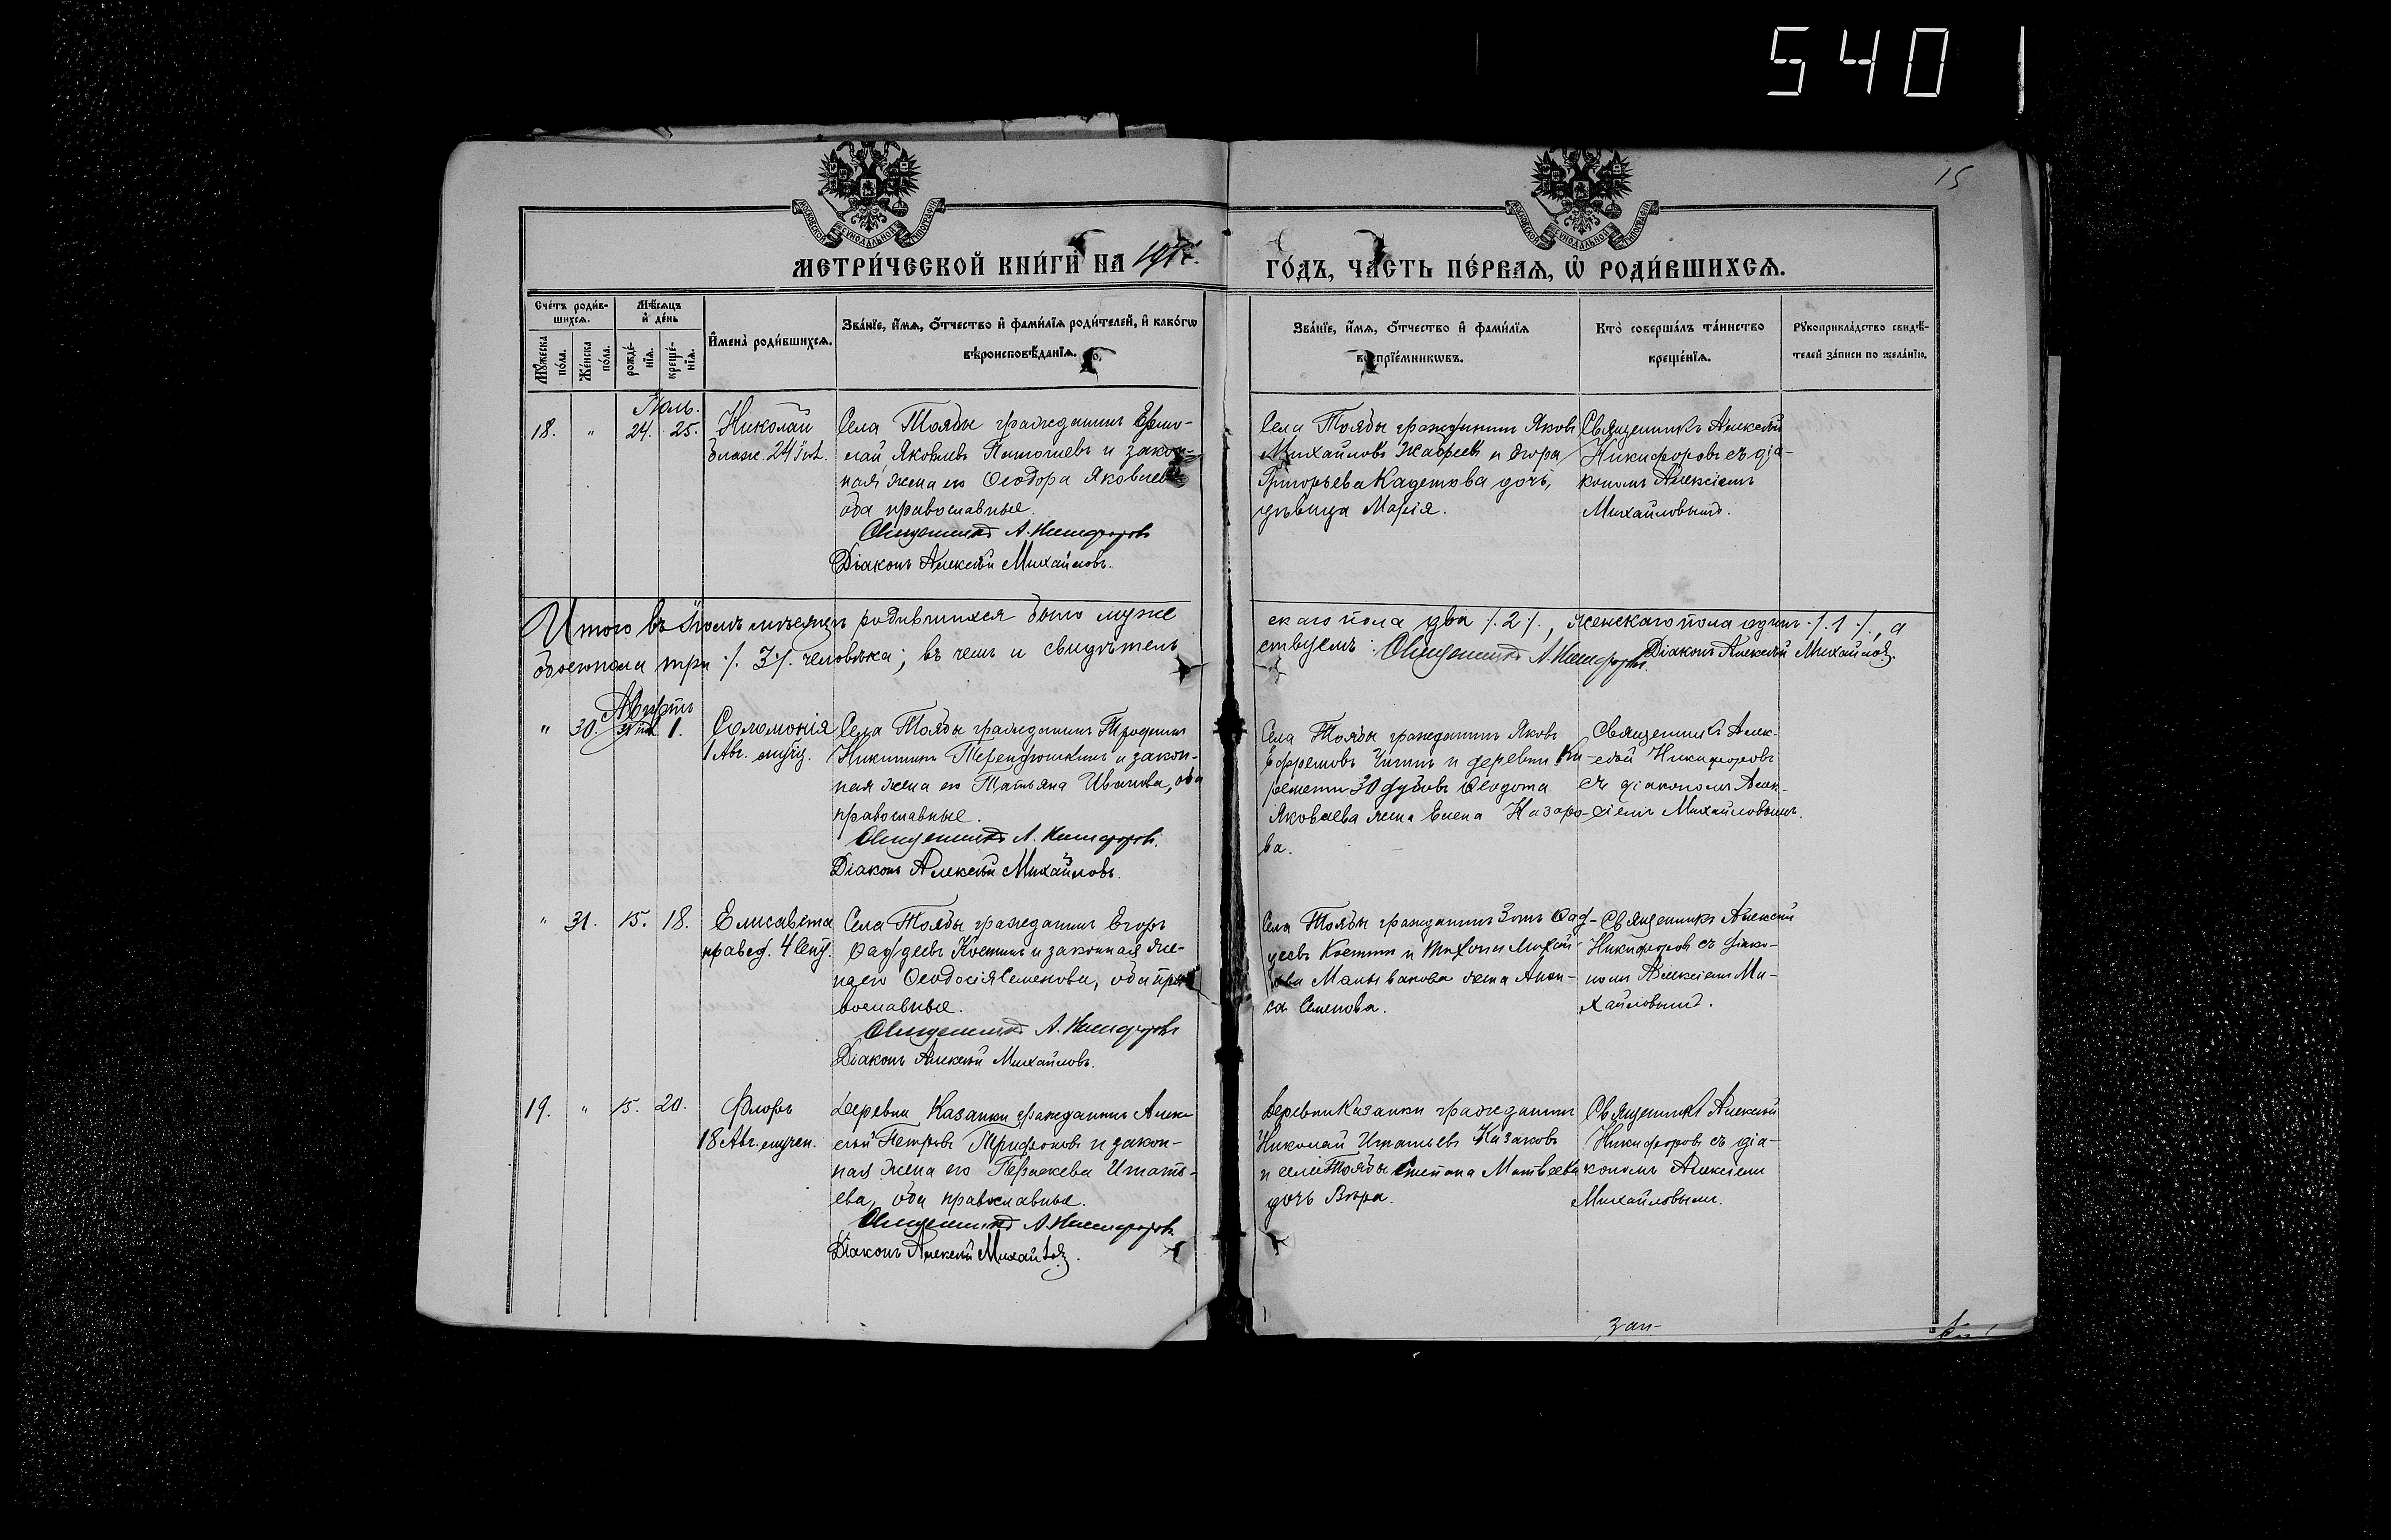 5401
15
МОСКОВСКОЙ СѴНОДАЛЬНОЙ ТИПОГРАФІИ
МОСКОВСКОЙ СѴНОДАЛЬНОЙ ТИПОГРАФІИ
МЕТРИ́ЧЕСКОЙ КНИ́ГИ НА
ГО́ДЪ, ЧА́СТЬ ПЕ́РВАѦ, Ѡ РОДИ́ВШИХСѦ.
Сче́тъ роди́в-
шихсѧ.
Мꙋ́жеска
по́ла.
Же́нска
по́ла.
Мѣ́сѧцъ
и҆ де́нь
рожде́-
нїѧ.
креще́-
нїѧ.
И҆мена̀ роди́вшихсѧ.
Зва́нїе, и҆́мѧ, ѻ҆́тчество и҆ фами́лїѧ роди́телей, и҆ како́гѡ
вѣроисповѣ́данїѧ.
Зва́нїе, и҆́мѧ, ѻ҆́тчество и҆ фами́лїѧ
воспрїе́мникѡвъ.
Кто̀ соверша́лъ та́инство
креще́нїѧ.
Рꙋкоприкла́дство свидѣ́-
телей за́писи по жела́нїю.
Іюль.
18. " 24. 25. Николай
блаж. 24 Іюл.
Села Тоябы гражданинъ Ермо-
лай Яковлевъ и закон-
ная жена его Ѳеодора Яковлева
оба православные.
Священникъ А. Никифоровъ
Діаконъ Алексѣй Михайловъ.
Села Тоябы гражданинъ Яковъ
Михайловъ и Егора
Григорьева Кадетова дочь,
дѣвица Марія.
Священникъ Алексѣй
Никифоровъ съ діа-
кономъ Алексіемъ
Михайловымъ.
Итого въ Іюлѣ мѣсяцѣ родившихся было муже
скаго пола два ./. 2 ./., женскаго пола одинъ ./. 1 ./., а
обоего пола три ./. 3 ./. человѣка; въ чемъ и свидѣтель
ствуемъ: Священникъ А. Никифоровъ. Діаконъ Алексѣй Михайловъ.
Августъ
" 30. 1. Соломонія
1 Авг. муч.
Села Тоябы гражданинъ Трофимъ
Никитинъ и закон-
ная жена его Татьяна Иванова, оба
православные.
Священникъ А. Никифоровъ.
Діаконъ Алексѣй Михайловъ.
Села Тоябы гражданинъ Яковъ
Ефремовъ и деревни Ки-
ремети 30 дубовъ Ѳеодота
Яковлева жена Елена Назаро-
ва.
Священникъ Алек-
сѣй Никифоровъ
съ діакономъ Алек-
сіемъ Михайловымъ.
" 31. 15. 18. Елисавета
правед. 4 Сент.
Села Тоябы гражданинъ Егоръ
Ѳаддеевъ Костинъ и законная же-
на его Ѳеодосія Семенова, оба пра
вославные.
Священникъ А. Никифоровъ
Діаконъ Алексѣй Михайловъ.
Села Тоябы гражданинъ Зотъ Ѳад-
деевъ Костинъ и Тихона Михай-
лова жена Анѳи-
са Семенова.
Священникъ Алексѣй
Никифоровъ съ діако-
номъ Алексіемъ Ми-
хайловымъ.
19. " 15. 20. Флоръ
18 Авг. мучен.
Деревни Казанки гражданинъ Алек-
сѣй Петровъ Трифоновъ и закон-
ная жена его Параскева Игнать-
ева, оба православные.
Священникъ А. Никифоровъ.
Діаконъ Алексѣй Михайловъ.
Деревни Казанки гражданинъ
Николай Игнатьевъ Казаковъ
и села Тоябы Степана Матвеева
дочь Вѣра.
Священникъ Алексѣй
Никифоровъ съ діа-
кономъ Алексіемъ
Михайловымъ.